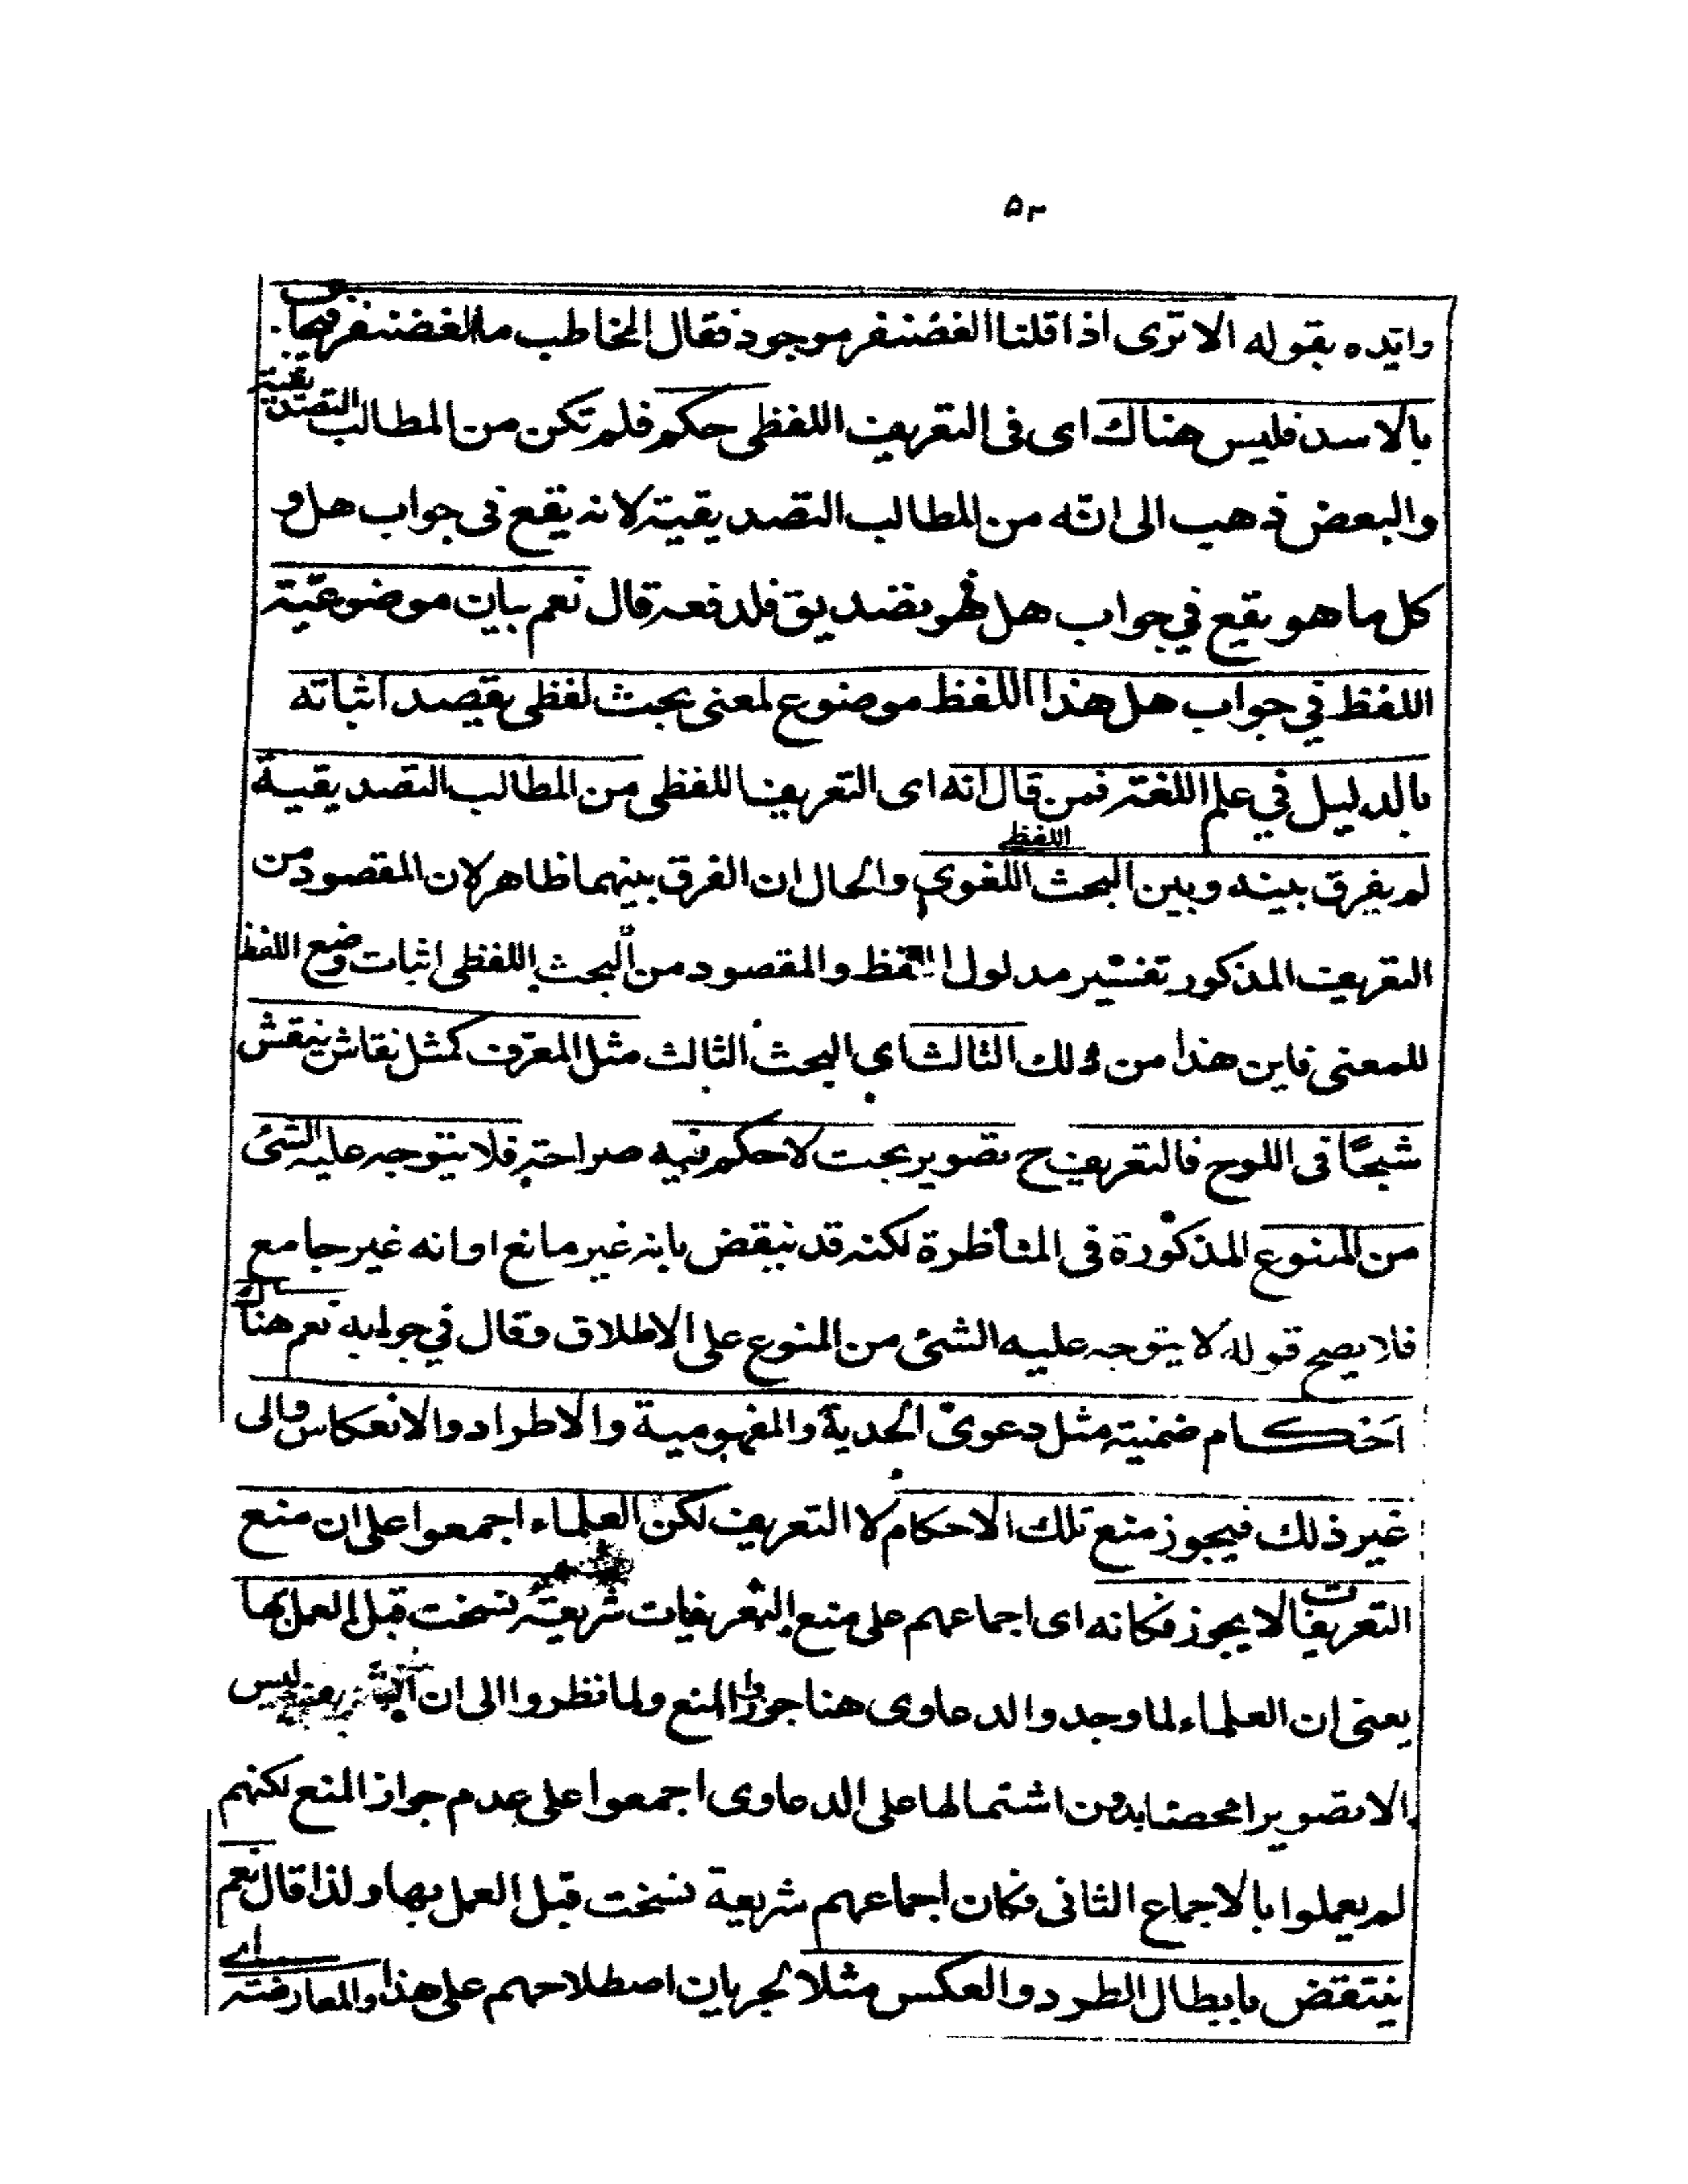 ۵۳
وايّده بقوله الا ترى اذا قلنا الغضنفر موجود فقال المخاطب ما الغضنفر
بالاسد فليس هناك اى فى التعريف اللفظى حكم فلم تكن من المطالب التصديقية
والبعض ذهب الى انّه من المطالب التصديقية لانه يقع فى جواب هل و
كل ما هو يقع في جواب هل فهو تصديق فلدفعه قال نعم بيان موضوعيّة
اللفظ في جواب هل هذا اللفظ موضوع لمعنى بحث لفظى يقصد اثباته
بالدليل في علم اللغة فمن قال انه اى التعريف اللفظى من المطالب التصديقية
لم يفرق بينه وبين البحث اللغوي اللفظى والحال ان الفرق بينهما ظاهر لان المقصود من
التعريف المذكور تفسير مدلول اللفظ والمقصود من البحث اللفظى اثبات وضع اللفظ
للمعنى فاين هذا من ذلك الثالث اي البحث الثالث مثل المعرّف كمثل نقاش ينقش
شبحًا فى اللوح فالتعريف ح تصوير بحت لا حكم فيه صراحة فلا يتوجه عليه الشئ
من المنوع المذكورة فى المناظرة لكنه قد ينقض بانه غير مانع او انه غير جامع
فلا يصح قوله لا يتوجه عليه الشئ من المنوع على الاطلاق وقال في جوابه نعم هناك
احكام ضمنية مثل دعوى الحدية والمفهومية والاطراد والانعكاس والى
غير ذلك فيجوز منع تلك الاحكام لا التعريف لكن العلماء اجمعوا على ان منع
التعريفات لا يجوز فكانه اى اجماعهم على منع التعريفات شريعة نسخت قبل العمل بها
يعنى ان العلماء لما وجدوا الدعاوى هنا جوزوا المنع ولما نظروا الى ان التعريف ليس
الا تصويرا محضا بدون اشتمالها على الدعاوى اجمعوا على عدم جواز المنع لكنهم
لم يعملوا بالاجماع الثانى فكان اجماعهم شريعة نسخت قبل العمل بها ولذا قال نعم
ينتقض بابطال الطرد والعكس مثلا لجريان اصطلاحهم على هذا والمعارضة اے